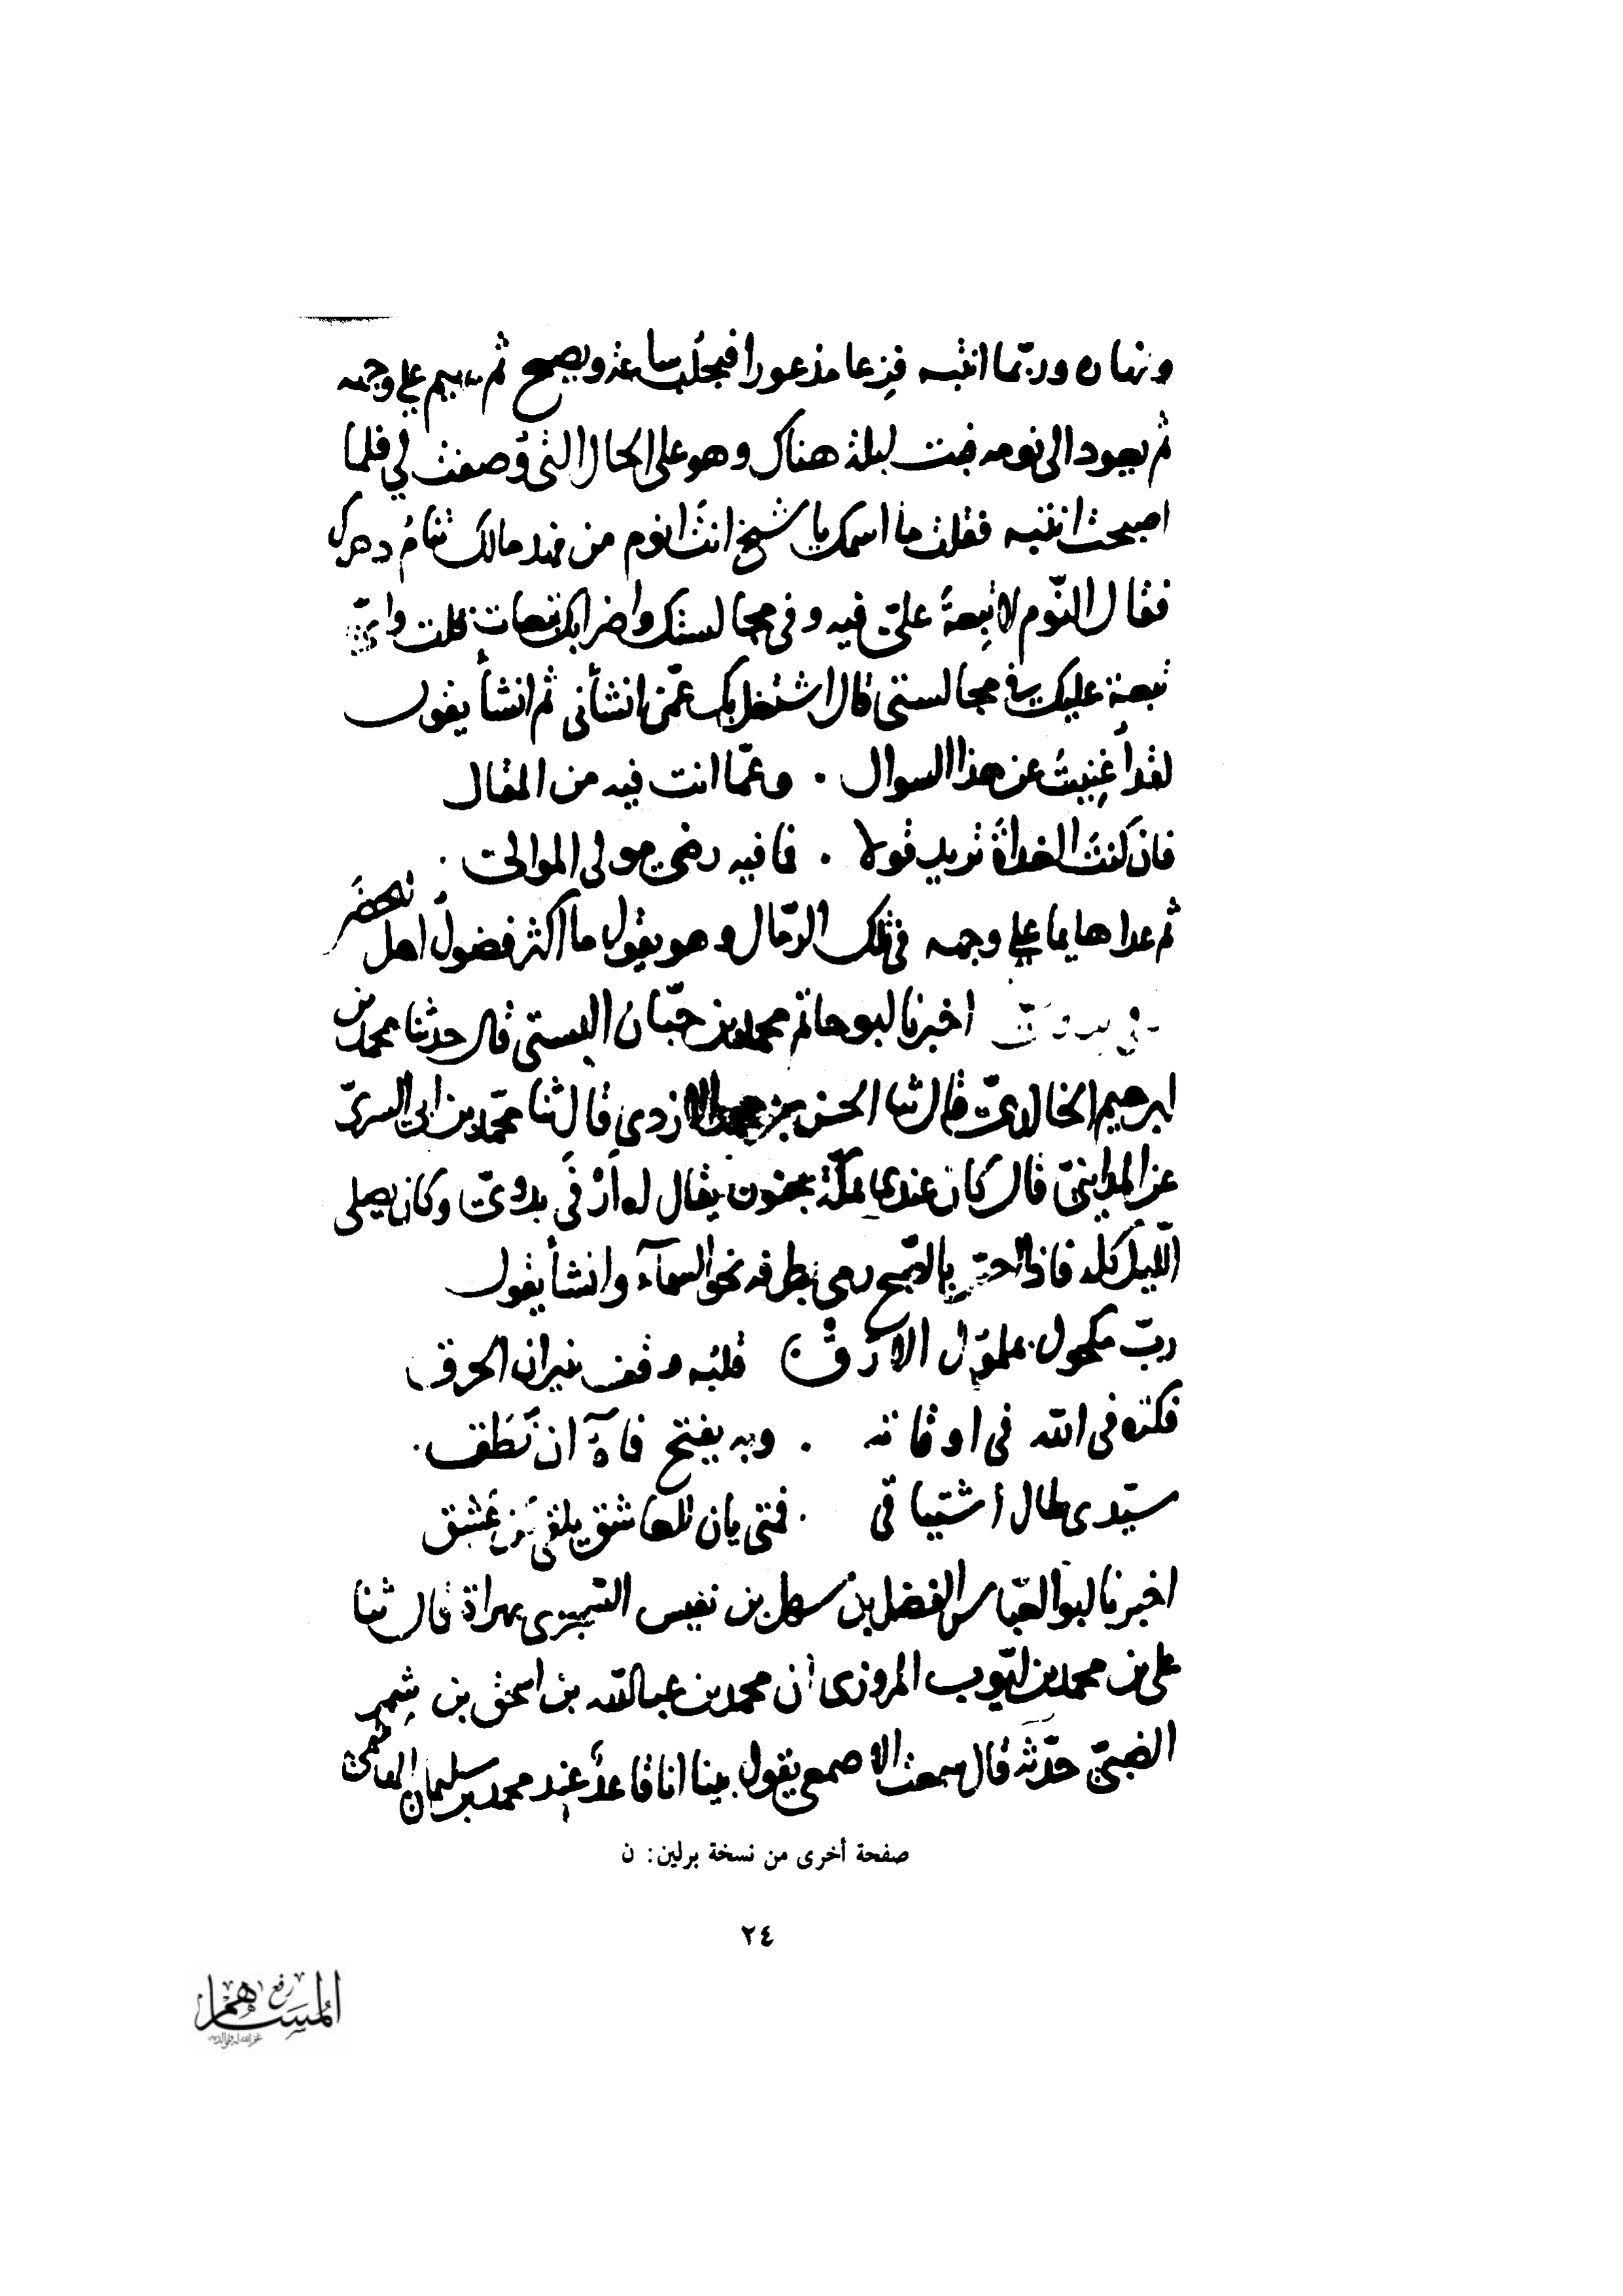 ونهاره وربّما انتبه فزعا مذعورا فيجلس ساعة ويصيح ثم يهيم على وجهه
ثم يعود الى نومه فبت ليلة هناك وهو على الحال التى وُصفت لي فلما
اصبحت انتبه فقلت ما اسمك يا شيخ انتَ انوم من فهد مالك تنامُ دهرك
فقال النّوم لا تبِعةً علىّ فيه وفى مجالستك واضرابك تبعات قلت واىّ
تبعة عليك في مجالستى قال اشتغل بك عمّن انشأنى ثم انشأ يقول
لقد أُغنيتُ عن هذا السوال . وعمّا انت فيه من المقال
فان كنتَ الغداةَ تريد قولا . فما فيه رضى مولى الموالى .
ثم عدا هايما على وجهه فى تلك الرّمال وهو يقول ما اكثر فضولُ اهل
الحضَر
اخبرنا ابو حاتم محمد بن حبّان البستى قال حدثنا محمد بن
ابرهيم الخالدىّ قال ثنا الحسن بن الازدى قال ثنا محمّد بن ابى السرىّ
عن المداينىّ قال كان عندنا بمكّة مجنون يقال له أرْفَى بدوىّ وكان يصلى
اللّيل كله فاذا احسّ بالصّبح رمى بطرفه نحو السمآء وانشأ يقول
ربّ مكحول بملمول الارق قلبُه وقف بنيران الحرق
فكره فى الله فى اوقاته . وبه يفتح فآهُ ان نَطَق .
سيّدى طال أشتياقى . فمتى يان للعاشق يلقى مَن عَشِق
اخبرنا ابو العبّاس الفضل بن سهل بن نفيس بهراة قال ثنا
على بن محمد بن ايّوب المروزى أن محمد بن عبد الله بن اسحق بن شِمر
الضبىّ حدّثه قال سمعت الاصمعى يقول بينا انا قاعدٌ عند محمد بن سليمان الهاشمى
صفحة أخرى من نسخة برلين: ن
٢٤
رفع
المساهم
غفر الله له ولوالديه